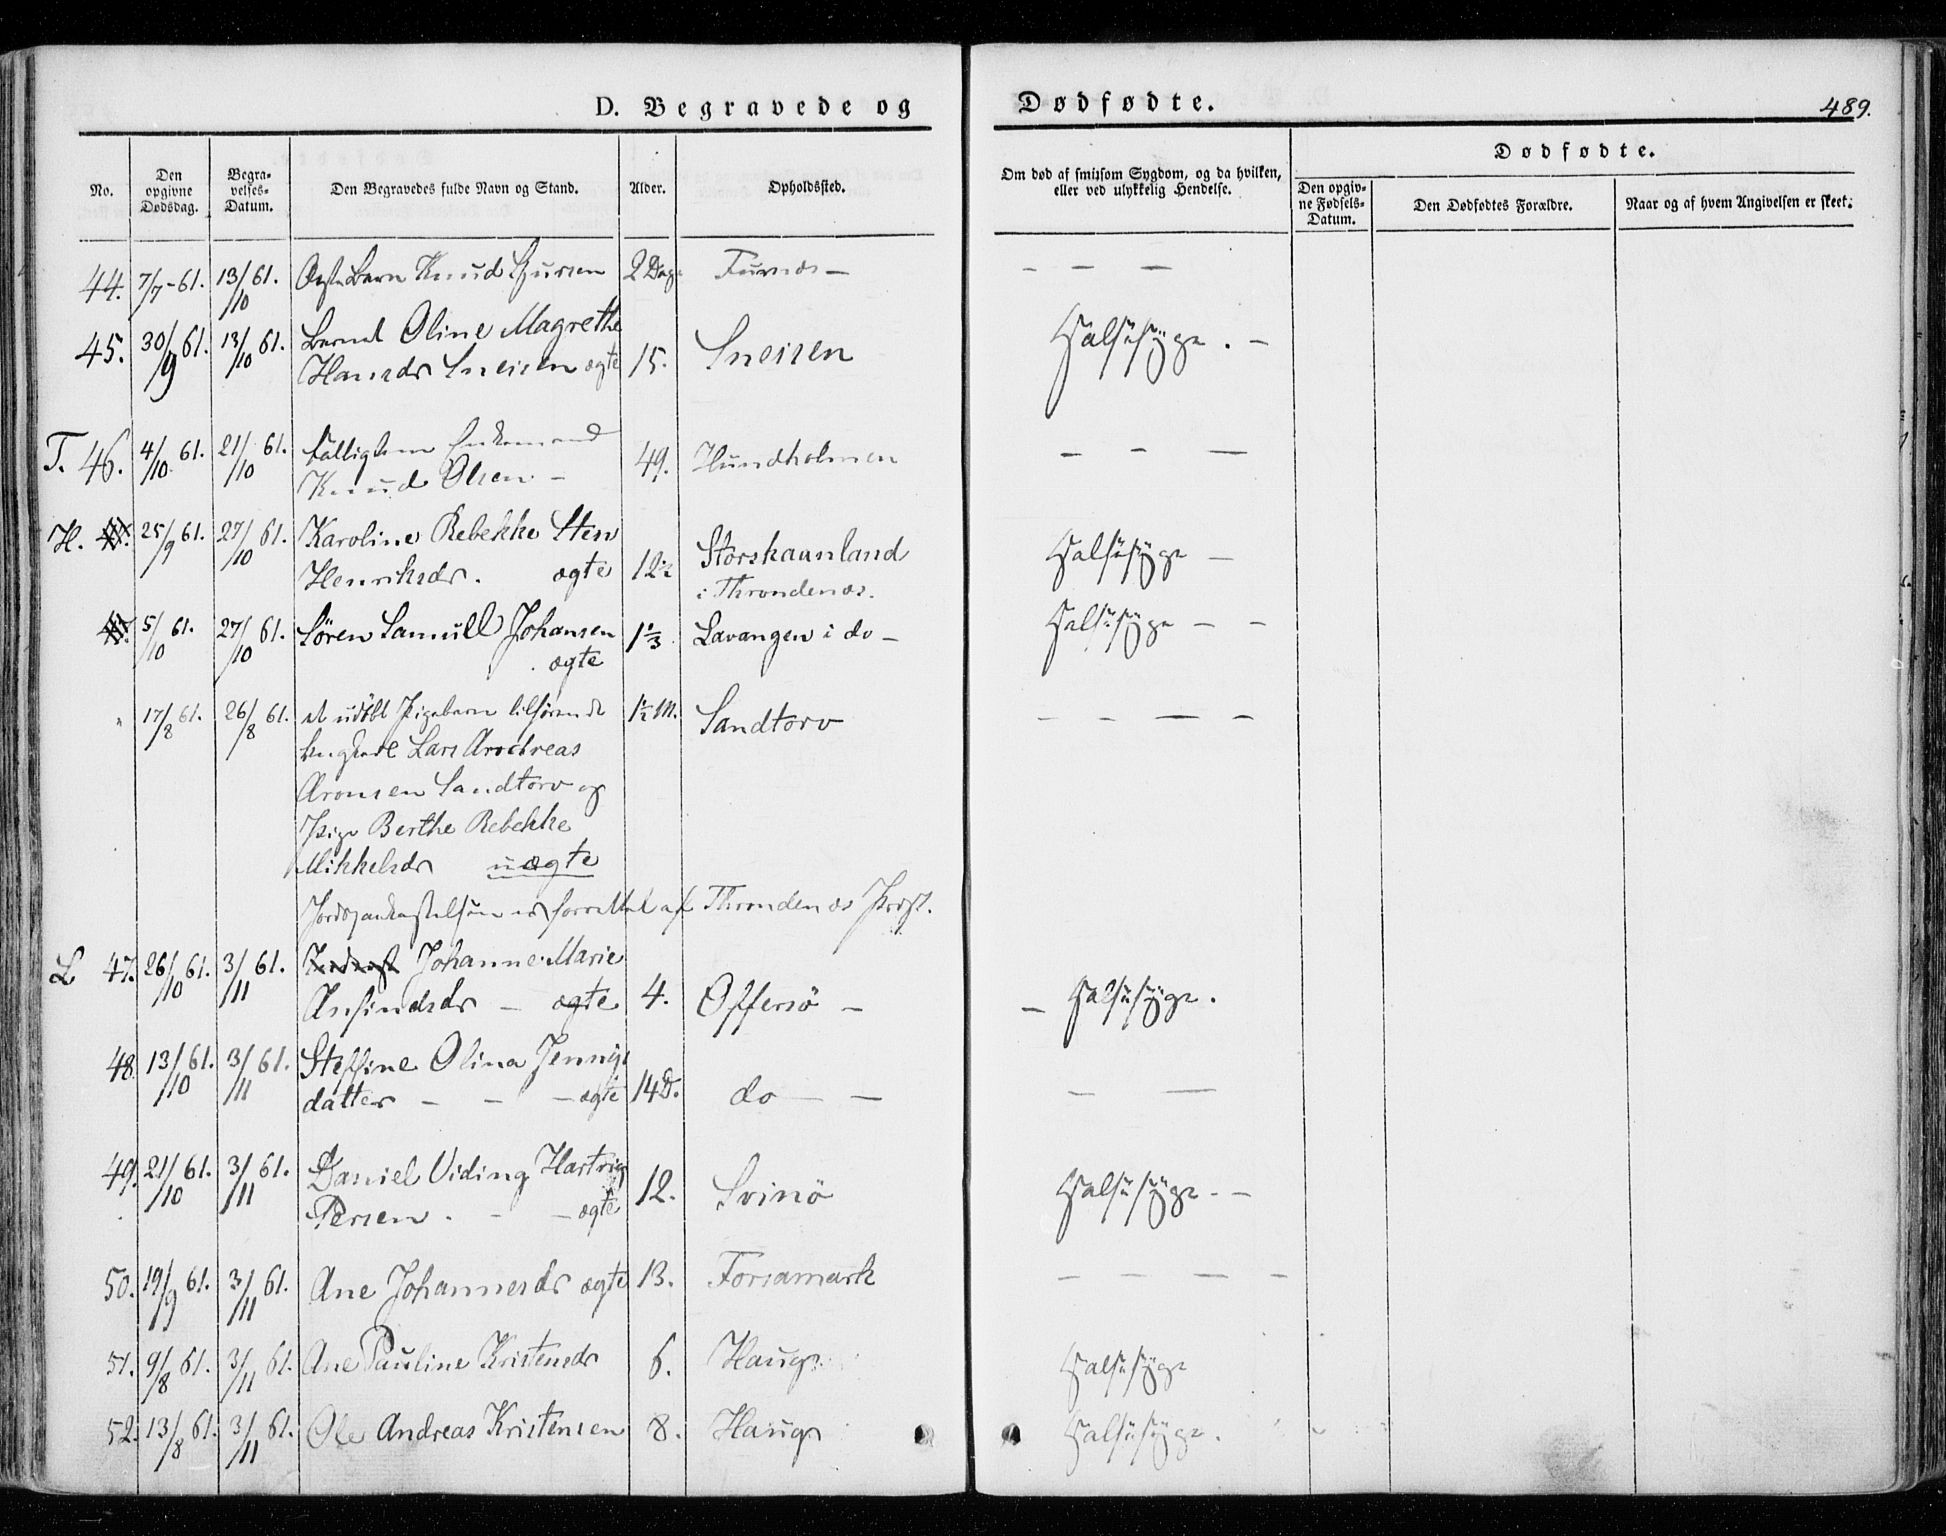 D. Begravede og Dødfødte. 489.
No. Den opgivne Dødsdag. Begravelses-Datum. Den Begravedes fulde Navn og Stand. Alder. Opholdssted. Om død af smitsom Sygdom, og da hvilken, eller ved ulykkelig Hendelse. Dødfødte. Den opgivne Fødsels-Datum. Den Dødfødtes Forældre. Naar og af hvem Angivelsen er skeet.
44. 7/7-61. 13/10 61. Barn Knud 2 Dag — — —
45. 30/9 61. 13/10 61. Barnet Oline Magrethe
Hansdr Sneisen ægte 15. Sneisen Halssyge. —
T. 46. 4/10 61. 21/10 61. Enkemand
Knud Olsen — 49. Hundholmen — — —
H. 25/9 61. 27/10 61. Karoline Rebekke Sten
Henriksdr. ægte 12 Storskaanland Halssyge —
i Throndenæs.
5/10 61. 27/10 61. Søren Samuel Johansen 1 1/3 Lavangen i do — Halssyge — —
ægte
" 17/8 61. 26/8 61. et udøbt Pigebarn tilhørende 1 1/2 M. Sandtorv — — — —
Lars Andreas
Aronsen Sandtorv og
Pige Berthe Rebekke
Mikkelsdr uægte
Jordspaakastelsen er forrettet af Throndenæs Præst.
L 47. 26/10 61. 3/11 61. Johanne Marie
Ansindsdr — ægte 4. Offersö — — Halssyge.
48. 13/10 61. 3/11 61. Steffine Olina Jennigs
datter — — — ægte 14 D. do — — — —
49. 21/10 61. 3/11 61. Daniel Viding Hartvig
Persen. — — ægte 12. Svinö Halssyge. —
50. 19/9 61. 3/11 61. Ane Johannesdr ægte 13. Forsamark — — — —
51. 9/8 61. 3/11 61. Ane Pauline Kristensdr 6. Hauge Halssyge
52. 13/8 61. 3/11 61. Ole Andreas Kristensen 8. Hauge Halssyge.